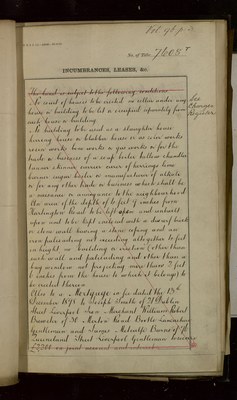 Vol. 98 p. 3
No. of Title, 7605 T
INCUMBRANCES, LEASES, &c.
The land is subject to the following conditions
No court of houses to be erected or cellar under any
house or building to be let or occupied separately from
such house or building.
No building to be used as a slaughter house
boiling house a blubber house or as iron works
bone works lime works a gas works or for the
trade or business of a soap boiler tallow chandler
tanner skinner currier curer of herrings lime
burner sugar boiler or manufacturer of
or for any other trade or business which shall be
a nuisance or annoyance to the neighbourhood
An area of the depth of 6 feet 9 inches from
Road to be left open and unbuilt
upon and to be kept enclosed with a dwarf brick
or stone wall having a stone coping and an
iron palisading not exceeding altogether 6 feet
in height no building or erection (other than
such wall and palisading and other than a
bay window not projecting more than 3 feet
inches from the house to which it belongs) to
be erected thereon
Also to a Mortgage in fee dated the 13th
December 1892 to Joseph Smith of
Street Liverpool Merchant William Robert
of 30 Merton Road Bootle Lancashire
Gentleman and James Metcalfe of
Street Liverpool Gentleman to secure
See
Charges
Register